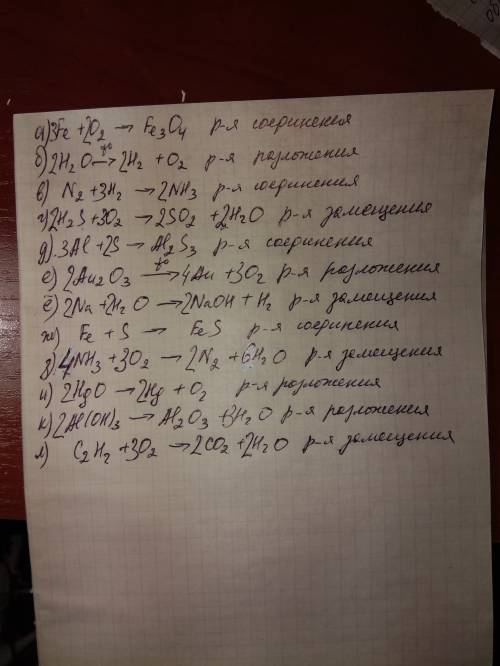 а) 3Fe + 2O₂ → Fe₃O₄ р-я соединения
б) 2H₂O t° → 2H₂ + O₂ р-я разложения
в) N₂ + 3H₂ → 2NH₃ р-я соединения
г) 2H₂S + 3O₂ → 2SO₂ + 2H₂O р-я замещения
д) 3Al + 2S → Al₂S₃ р-я соединения
е) 2Au₂O₃ t° → 4Au + 3O₂ р-я разложения
ё) 2Na + 2H₂O → 2NaOH + H₂ р-я замещения
ж) Fe + S → FeS р-я соединения
з) 4NH₃ + 3O₂ → 2N₂ + 6H₂O р-я замещения
и) 2HgO → 2Hg + O₂ р-я разложения
к) 2Al(OH)₃ → Al₂O₃ + 3H₂O р-я разложения
л) C₂H₂ + 3O₂ → 2CO₂ + 2H₂O р-я замещения